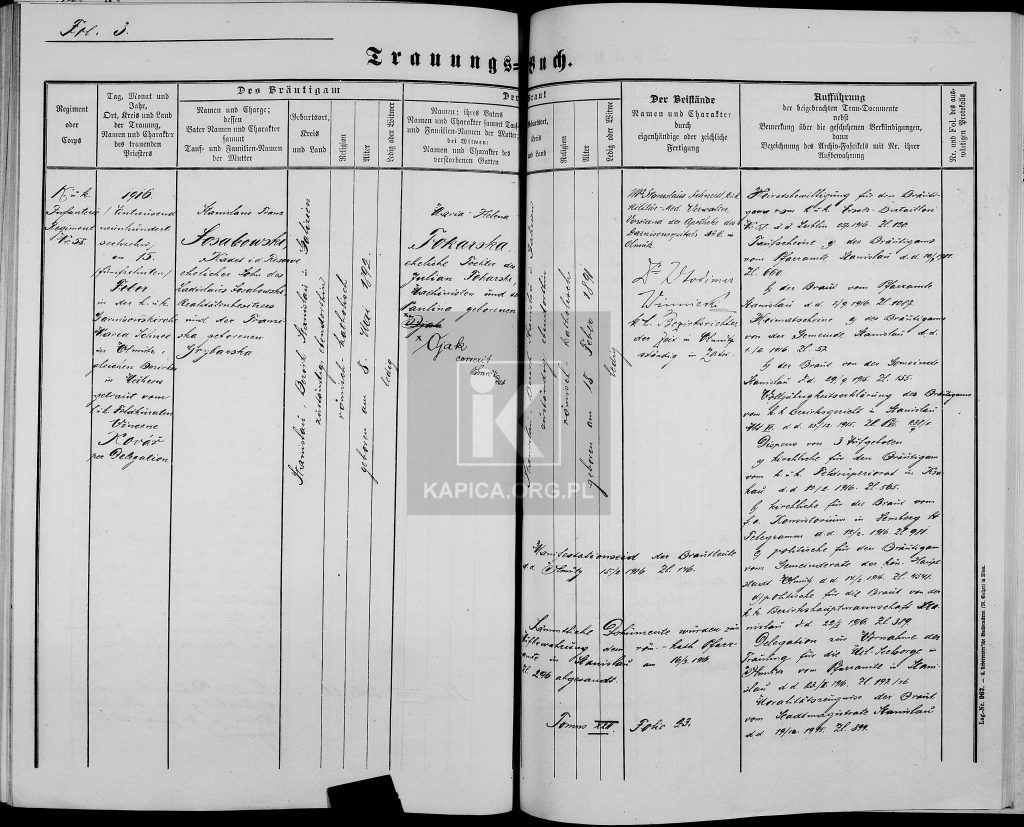 Fol. 3.
Trauungs=Buch.
Regiment
oder
Corps
Tag, Monat und
Jahr,
Ort, Kreis und Land
der Trauung,
Namen und Charakter
des trauenden
Priesters
Des Bräutigam
Namen und Charge;
dessen
Vater Namen und Charakter
sammt
Tauf- und Familien-Namen
der Mutter
Geburtsort,
Kreis
und Land
Religion
Alter
Ledig oder Witwer
Der Braut
Namen: ihres Vaters
Namen und Charakter sammt Tauf-
und Familien-Namen der Mutter;
bei Witwen:
Namen und Charakter des
verstorbenen Gatten
Geburtsort,
Kreis
und Land
Religion
Alter
Ledig oder Witwe
Der Beistände
Namen und Charakter
durch
eigenhändige oder zeichliche
Fertigung
Aufführung
der beigebrachten Trau-Documente
nebst
Bemerkung über die geschehenen Verkündigungen,
dann
Bezeichnung des Archiv-Fascikels mit Nr. ihrer
Aufbewahrung
Nr. und Fol. des aus-
wärtigen Protokolls
K. u. k.
Infanterie
Regiment
Nr. 55
1916
/Eintausend
neunhundert
sechzehn/
am 15.
/fünfzehnten/
Feber
in der k.u.k.
Garnisonskirche
Maria Schnee
in Olmütz,
gleichen Bezirkes
in Mähren
getraut vom
Feldkuraten
Vincenc
Kovář
per Delegation
Stanislaus Franz
Sosabowski,
Kadet i.d. Reserve
ehelicher Sohn des
Ladislaus Sosabowski,
Realitätenbesitzers
und der Franzi-
ska geborenen
Grzbarska
Stanislau, Bezirk Stanislau in Galizien
zuständig ebendorthin
römisch-katholisch
geboren am 8. Mai 1892
ledig
Maria Helena
Tokarska
eheliche Tochter des
Julian Tokarski,
Maschinisten und der
Paulina geborenen
× Ojak
correxit
Stanislau, Bezirk Stanislau in Galizien
zuständig ebendorthin
römisch-katholisch
geboren am 15. Feber 1891
ledig
Stanislaus Schneid, k.u.k.
Militär-Med. Verwalter,
Vorstand der Apotheke des
Garnisonsspitals No 6. in
Olmütz
Dr Wlodimer
Winnicki
k.k. Bezirksrichter
der
ständig in
Manifestationseid der Brautleute
d.d. Olmütz 15/2 1916 Zl. 146.
Sämmtliche Dokumente wurden zur
Aufbewahrung dem röm.-kath. Pfarr-
amte in Stanislau am 16/2 1916
Zl. 296 abgesandt.
Tomus XIII. Folio 23.
Heiratsbewilligung für den Bräuti-
gam vom k.u.k. Ersatz-Bataillon
Taufscheine a) des Bräutigams
vom Pfarramte Stanislau d.d.
Zl. 660.
b) der Braut vom Pfarramte
Stanislau d.d. 2/9 1916. Zl.
Heimatscheine a) des Bräutigams
von der Gemeinde Stanislau d.d.
Zl. 57.
b) der Braut von der Gemeinde
Stanislau d.d. 29/9 1915. Zl. 155.
Volljährigkeitserklärung des Bräutigams
vom k.k. Bezirksgericht in Stanislau
Dispens von 3 Aufgeboten
a) kirchliche für den Bräutigam
vom k.u.k. Feldsuperiorat in Kra-
kau d.d. 10/2 1916. Zl. 565.
b) kirchliche für die Braut vom
f.e. Konsistorium in Lemberg lt.
Telegramm d.d. 12/2 1916 Zl. 971
c) politische für den Bräutigam
vom Gemeinderate der kön. Haupt-
stadt Olmütz d.d. 14/2 1916. Zl. 4541.
d) politische für die Braut von der
k.k. Bezirkshauptmannschaft Sta-
nislau d.d. 1916. Zl. 379.
Delegation zur Vornahme der
Trauung für die Mil. Seelsorge in
Olmütz vom Pfarramte in Stanis-
lau d.d.
Moralitätszeugniss der Braut
vom Stadtmagistrate Stanislau
d.d. 19/12. 1915. Zl. 899.
KAPICA.ORG.PL